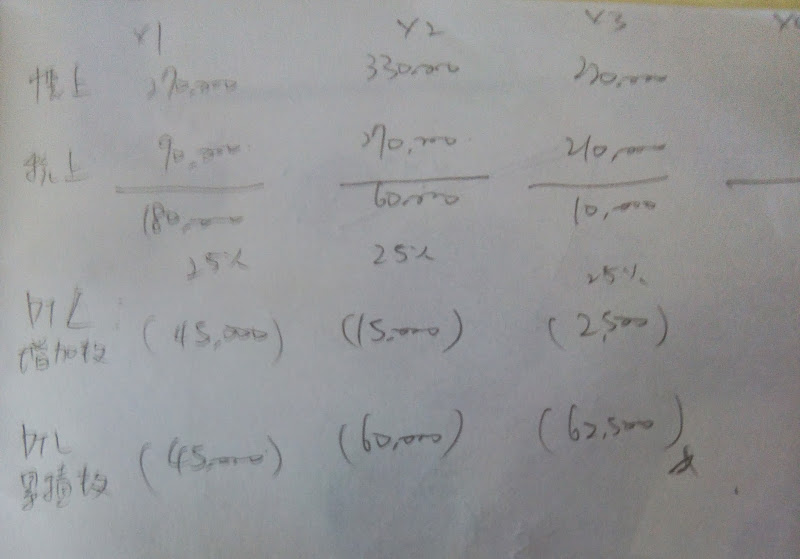 Y1 Y2 Y3
帳上 270,000 330,000 220,000
稅上 90,000 270,000 210,000
180,000 60,000 10,000
25% 25% 25%
DTL:
增加数 (45,000) (15,000) (2,500)
DTL
累積数 (45,000) (60,000) (62,500)